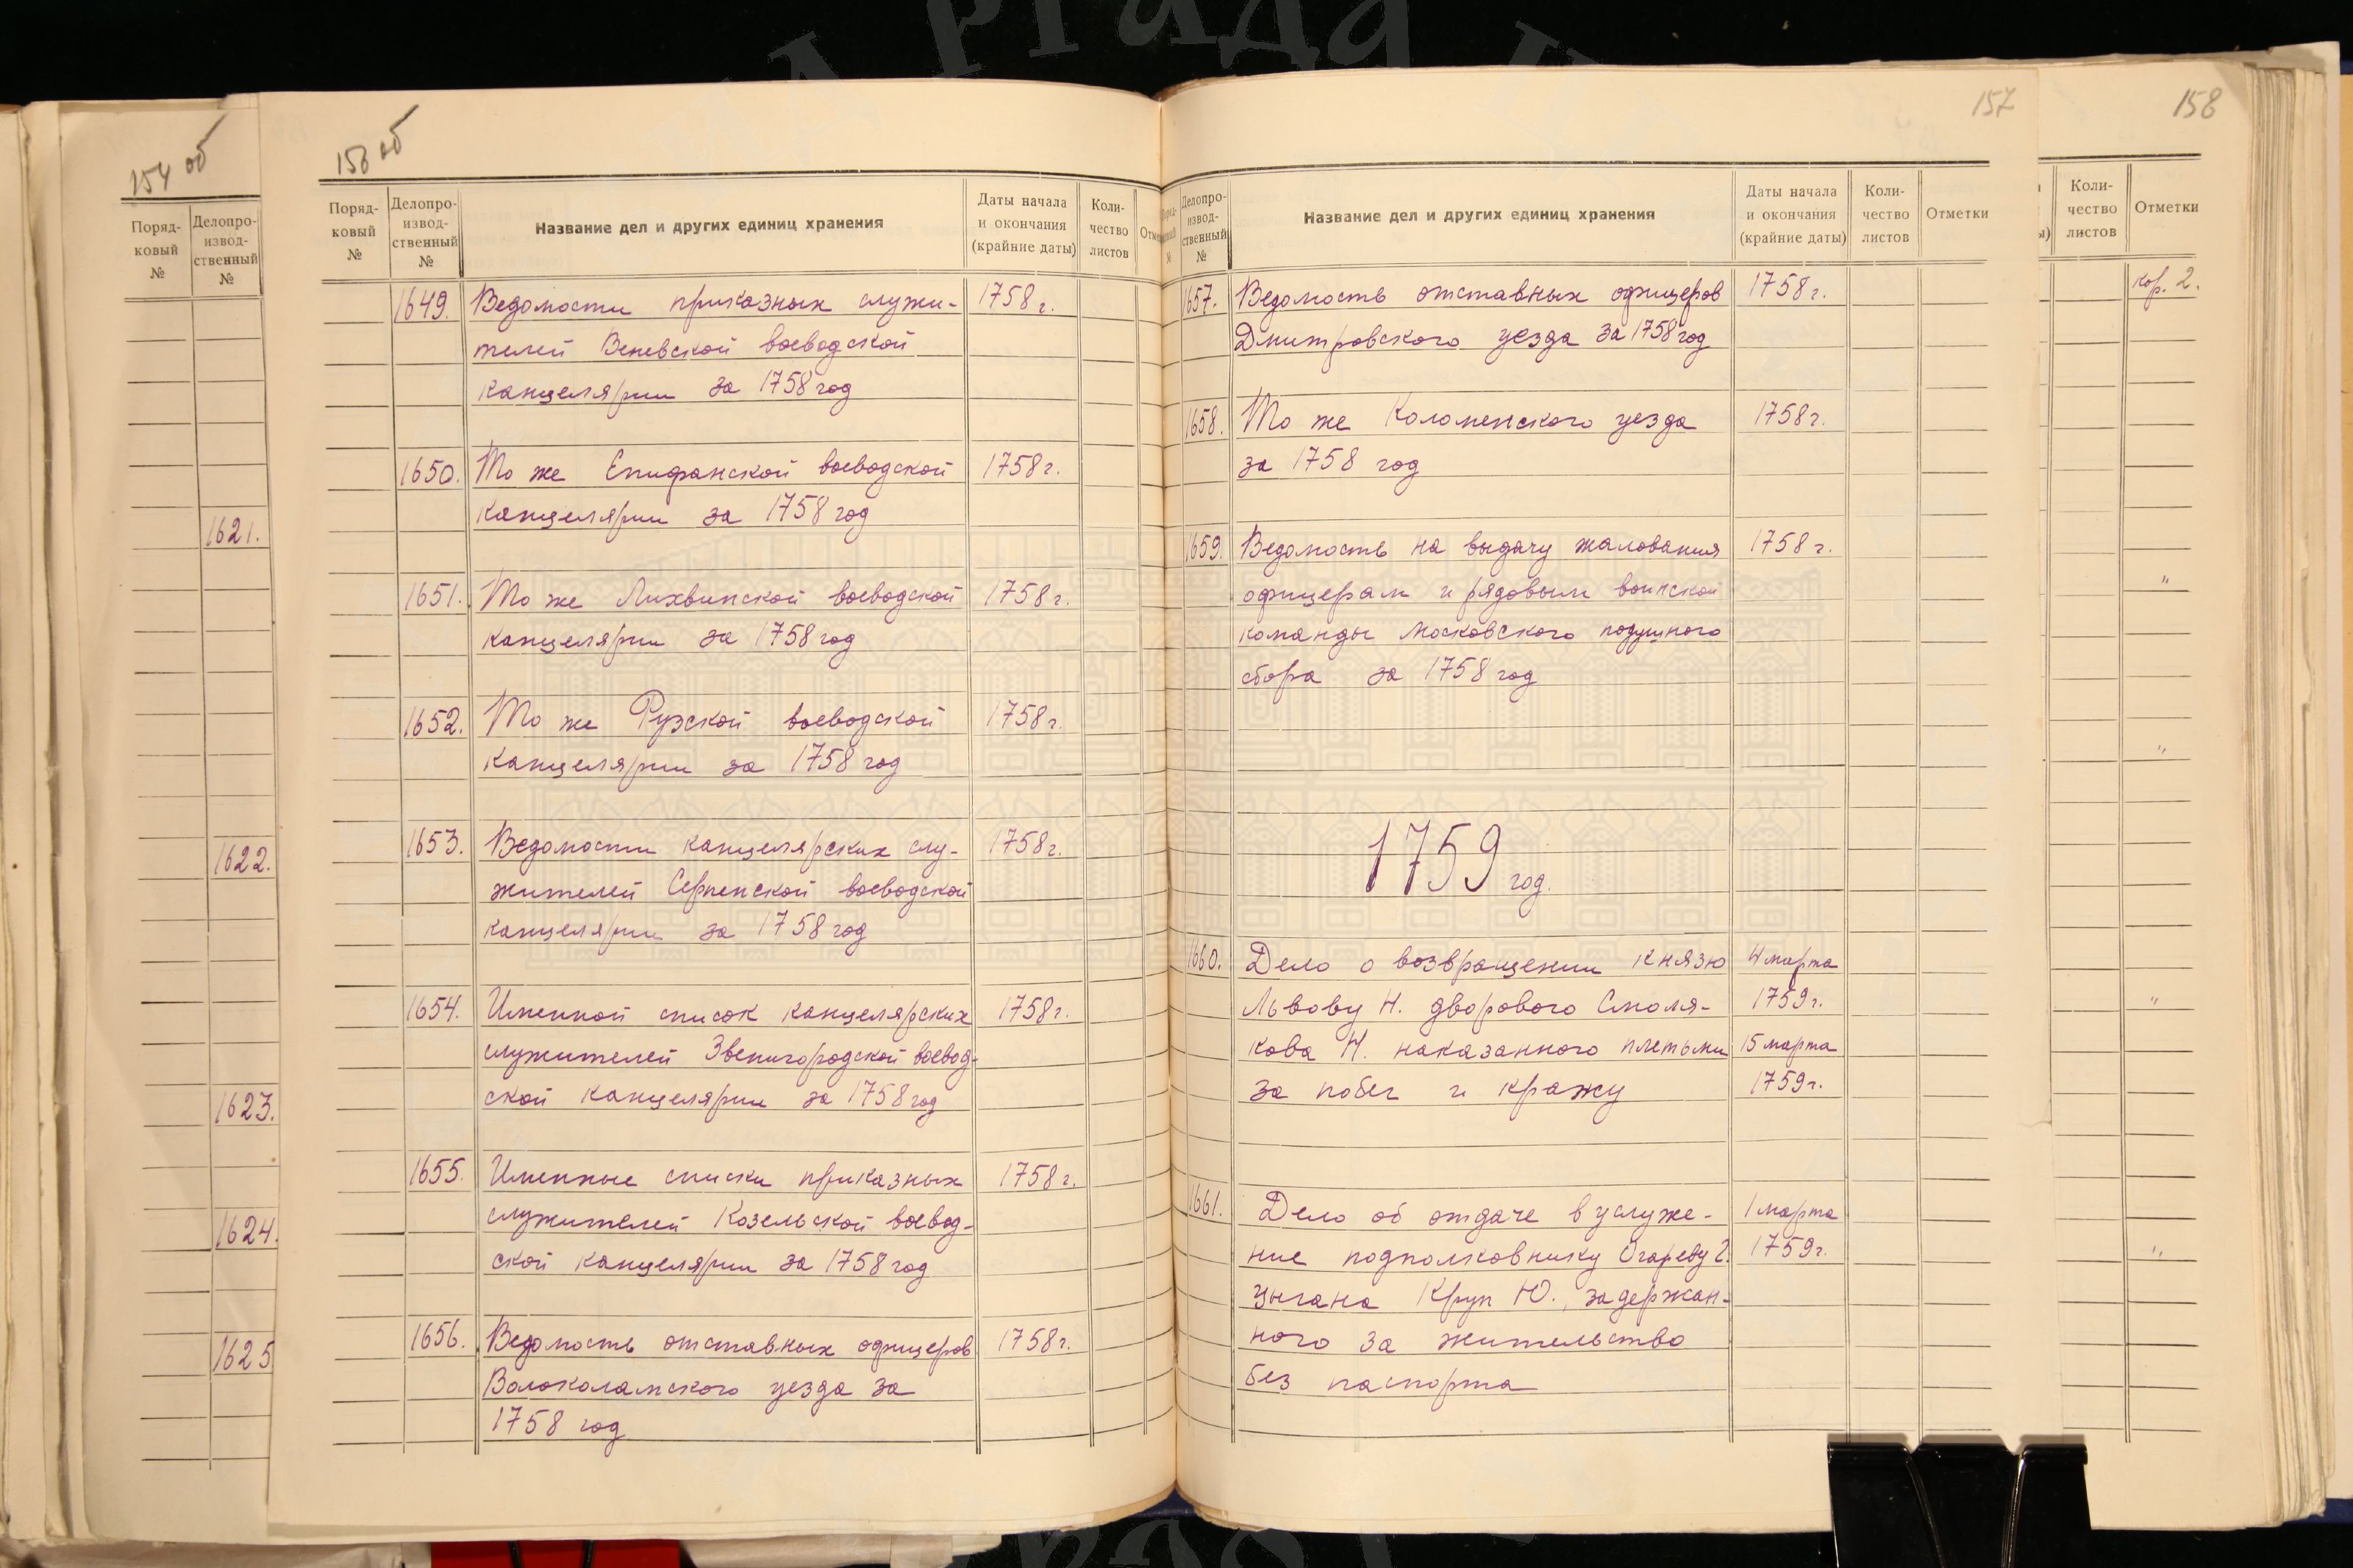 154 об
Поряд-
ковый
№
Делопро-
извод-
ственный
№
1621.
1622.
1623.
1624.
1625
156 об
Поряд-
ковый
№
Делопро-
извод-
ственный
№
Название дел и других единиц хранения
Даты начала
и окончания
(крайние даты)
Коли-
чество
листов
1649. Ведомости приказных служи- 1758 г.
телей Веневской воеводской
канцелярии за 1758 год
1650. То же Епифанской воеводской 1758 г.
канцелярии за 1758 год
1651. То же Лихвинской воеводской 1758 г.
канцелярии за 1758 год
1652. То же Рузской воеводской 1758 г.
канцелярии за 1758 год
1653. Ведомости канцелярских слу- 1758 г.
жителей Серпенской воеводской
канцелярии за 1758 год
1654. Именной список канцелярских 1758 г.
служителей Звенигородской воевод-
ской канцелярии за 1758 год
1655. Именные списки приказных 1758 г.
служителей Козельской воевод-
ской канцелярии за 1758 год
1656. Ведомость отставных офицеров 1758 г.
Волоколамского уезда за
1758 год
157
Делопро-
извод-
ственный
№
Название дел и других единиц хранения
Даты начала
и окончания
(крайние даты)
Коли-
чество
листов
Отметки
1657. Ведомость отставных офицеров 1758 г.
Дмитровского уезда за 1758 год
1658. То же Коломенского уезда 1758 г.
за 1758 год
1659. Ведомость на выдачу жалования 1758 г.
офицерам и рядовым воинской
команды Московского подушного
сбора за 1758 год
1759 год.
1660. Дело о возвращении князю 4 марта
Львову Н. дворового Смоля- 1759 г.
кова Н. наказанного плетьми 15 марта
за побег и кражу 1759 г.
1661. Дело об отдаче в услуже- 1 марта
ние подполковнику Огареву Г. 1759 г.
цыгана Круп Ю., задержан-
ного за жительство
без паспорта
158
Коли-
чество
листов
Отметки
кор. 2.
"
"
"
"